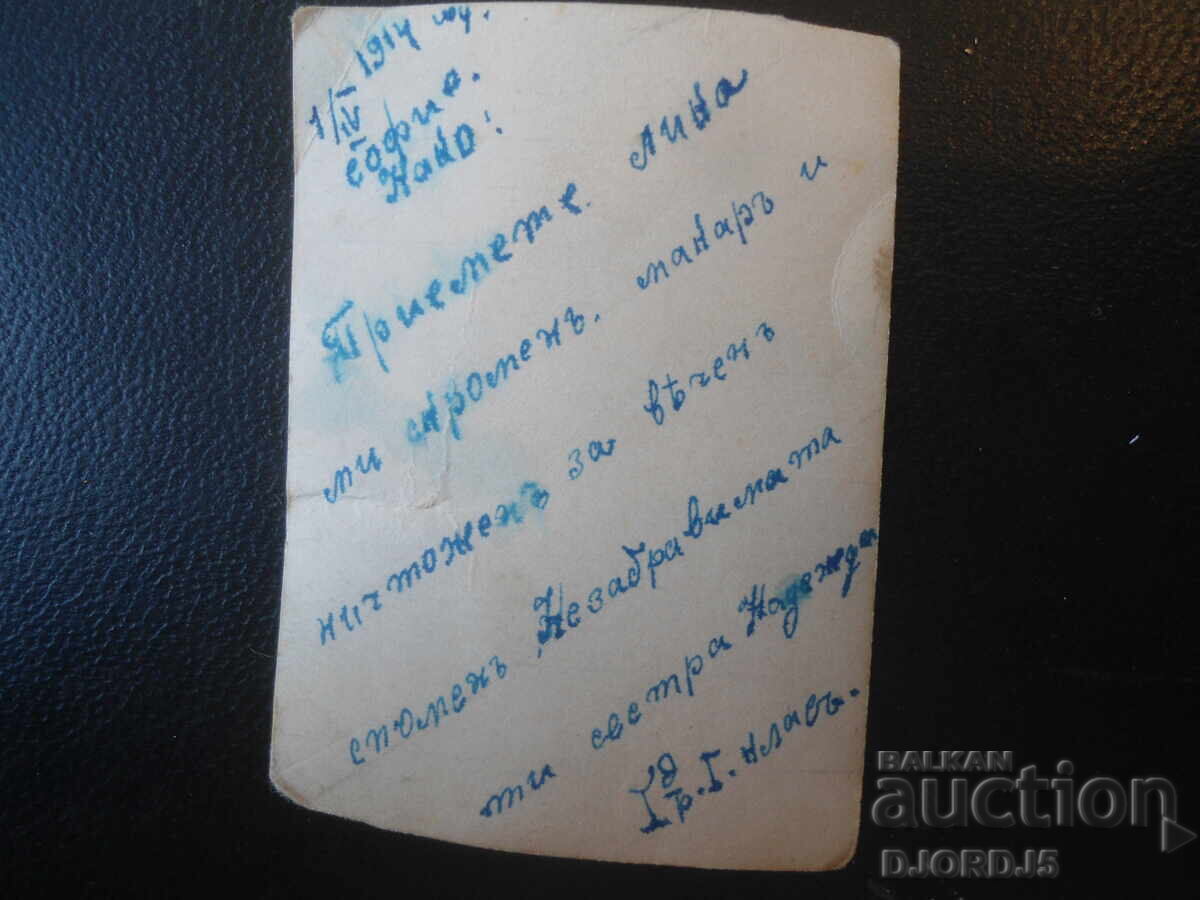 1/IV 1914 год.
София.
Како!
Приемете лика
ми скроменъ. макаръ и
нитоженъ за вѣченъ
споменъ, Незабравимата
ти сестра Надежда
I В.
г. Г. класъ.
BALKAN
auction
DJORDJ5